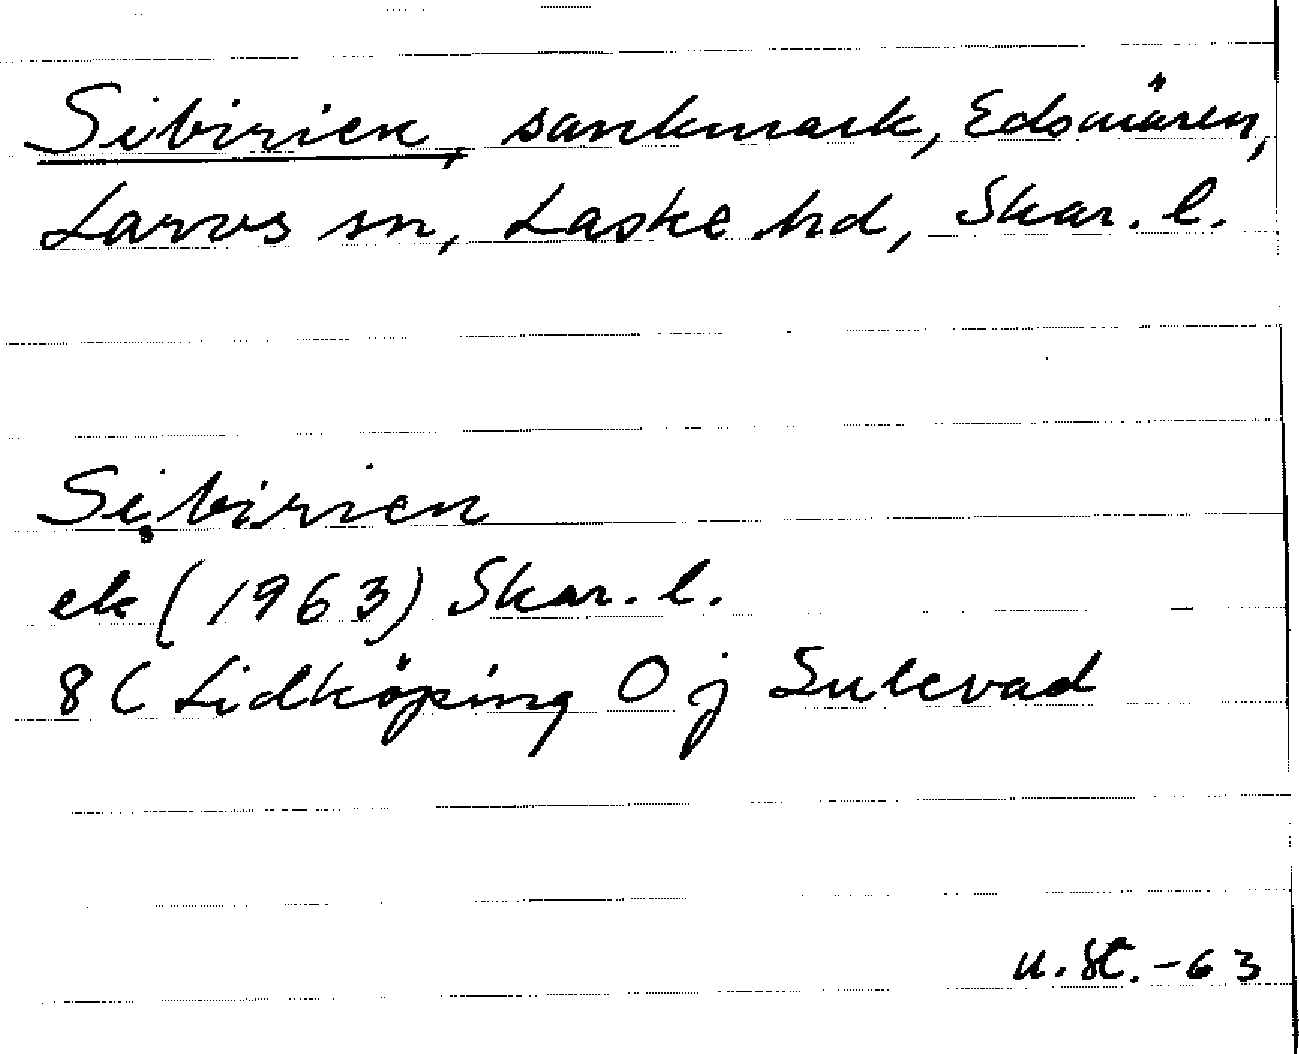 Sibirien, sankmark, Edsmären,
Larvs sn, Laske hd, Skar. l.
Sibirien
ek (1963) Skar. l.
8C Lidköping 0 j Sulevad
u. St. -63